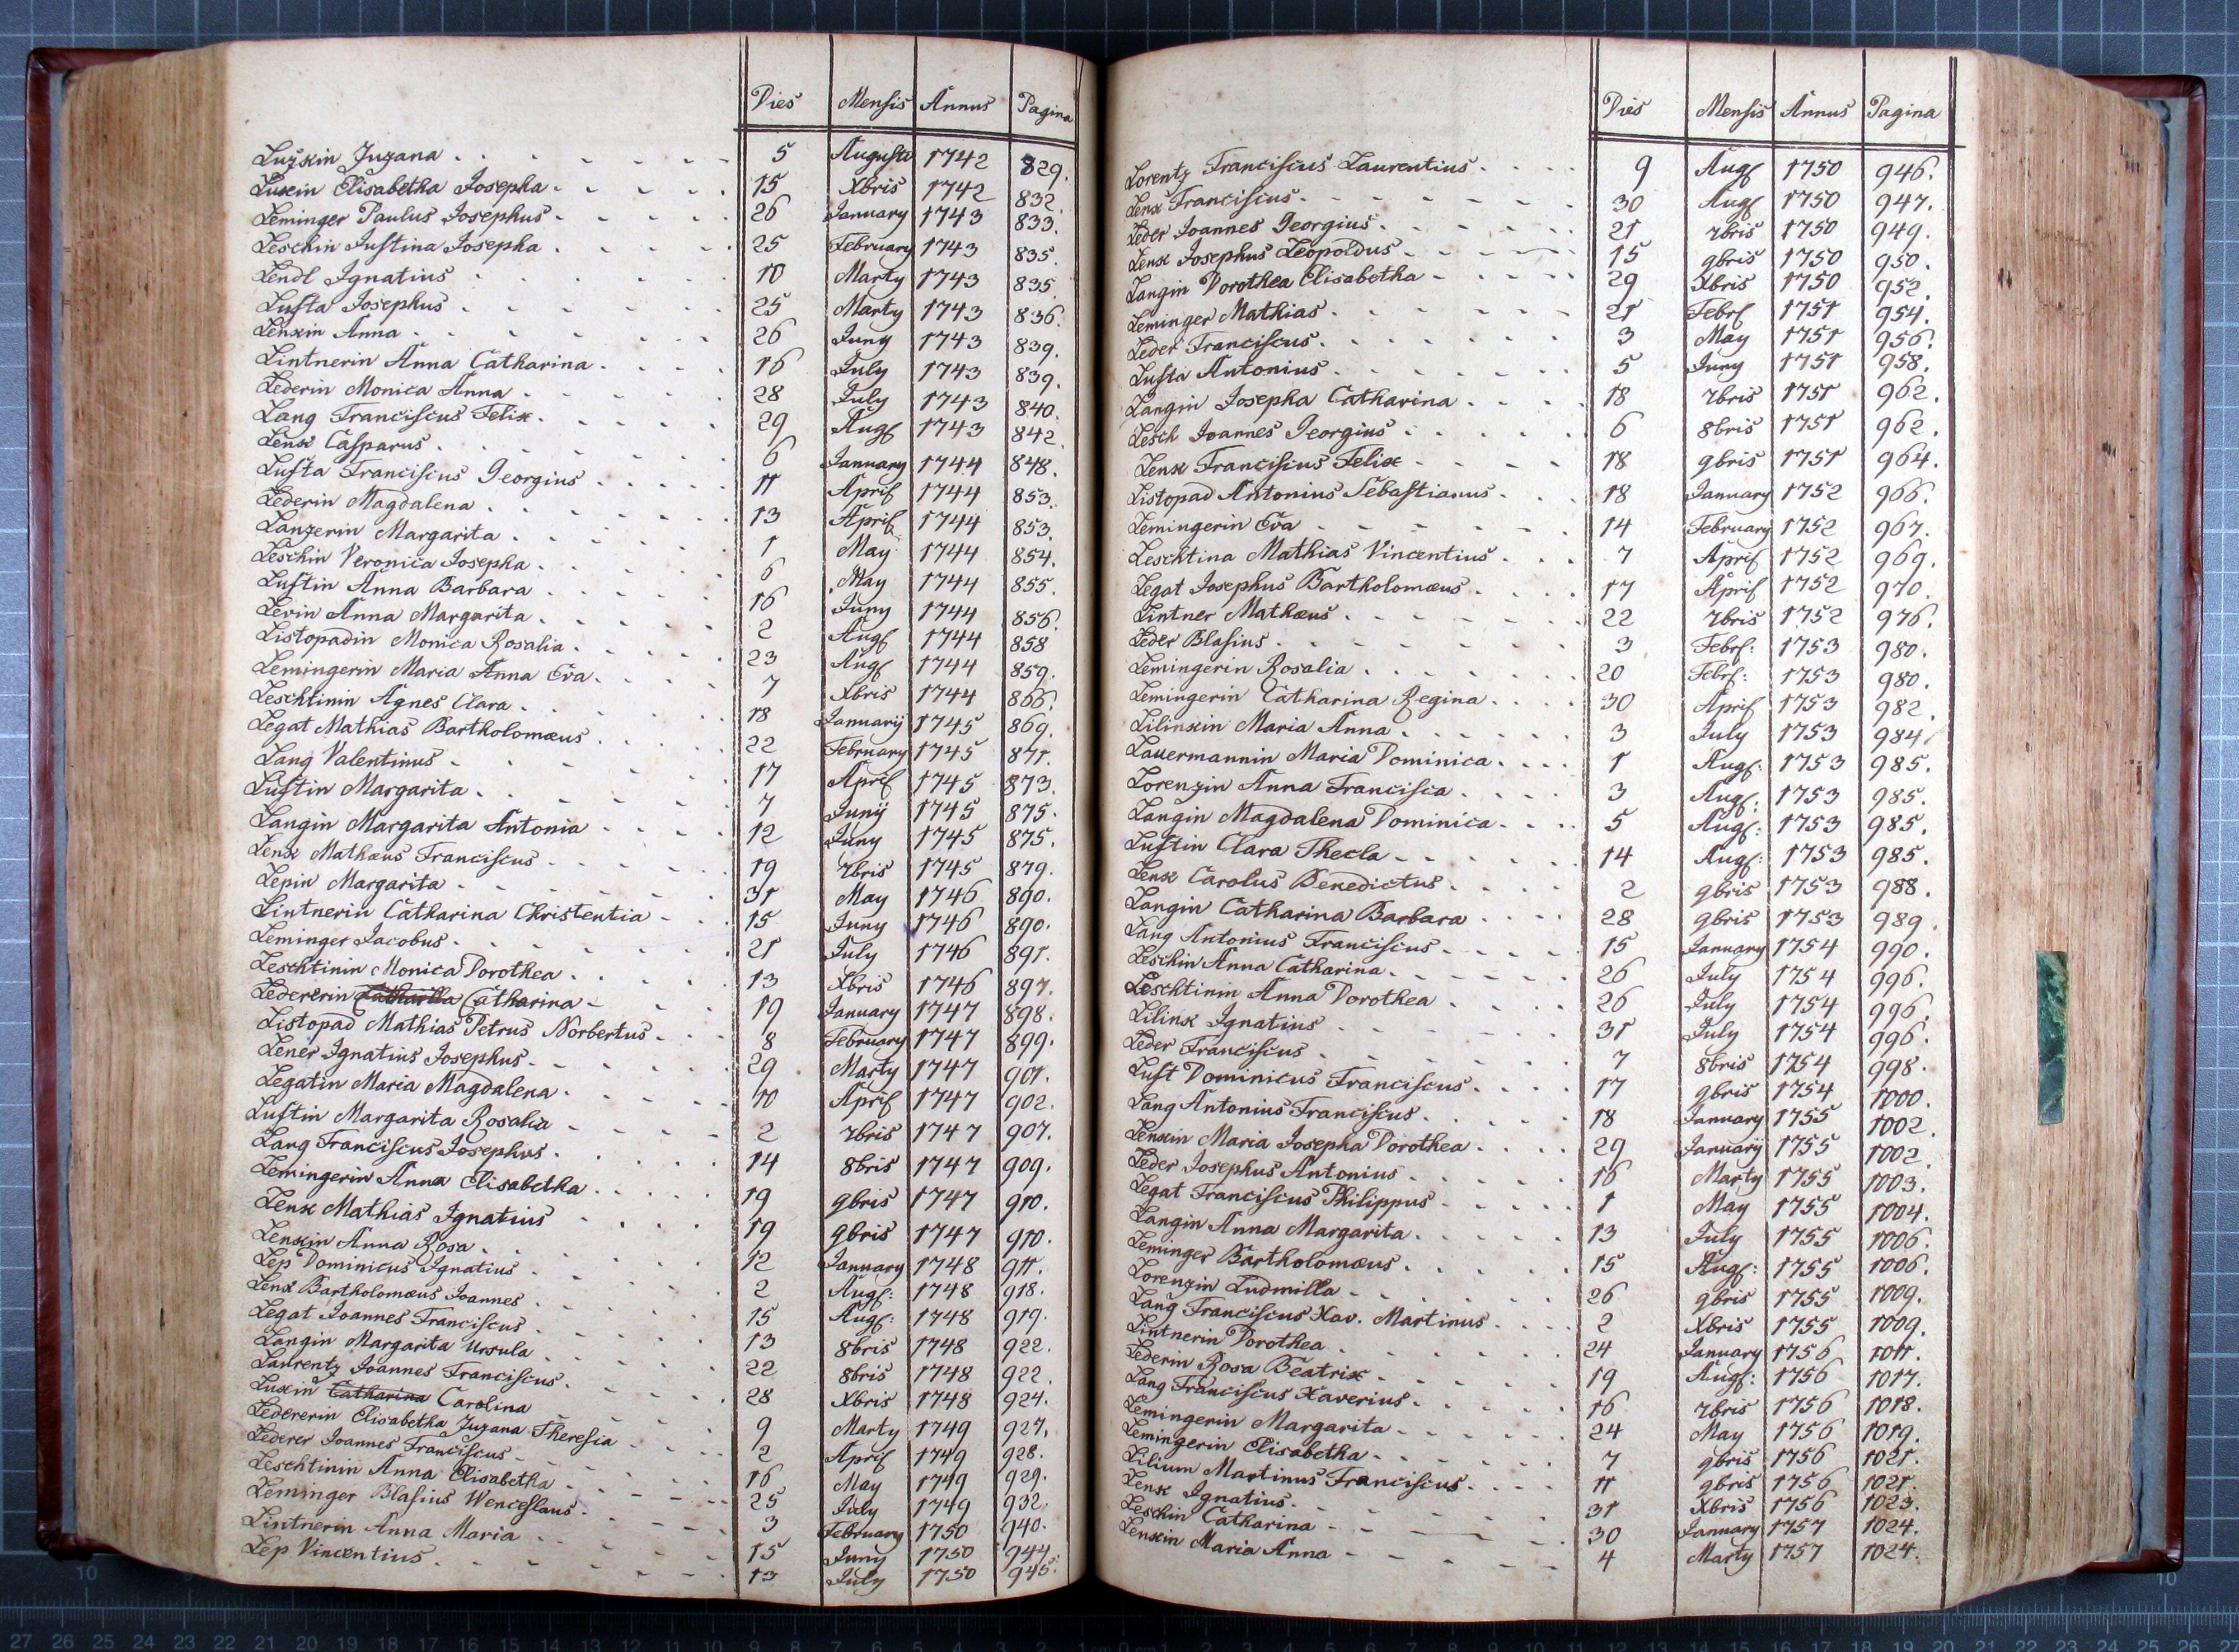 Dies Mensis Annus Pagina
Luzkin Zuzana 5 Augusti 1742 829.
Luxin Elisabetha Josepha 15 Xbris 1742 832.
Leminger Paulus Josephus 26 January 1743 833.
Leschin Justina Josepha 25 February 1743 835.
Lendl Ignatius 10 Marty 1743 835
Lusta Josephus 25 Marty 1743 836.
Lenxin Anna 26 Juny 1743 839.
Lintnerin Anna Catharina 16 July 1743 839.
Lederin Monica Anna 28 July 1743 840.
Lang Franciscus Felix 29 Aug 1743 842
Lenx Casparus 6 January 1744 848.
Lusta Franciscus Georgius 11 April 1744 853.
Lederin Magdalena 13 April 1744 853.
Lanzerin Margarita 1 May 1744 854.
Leschin Veronica Josepha 6 May 1744 855.
Lustin Anna Barbara 16 Juny 1744 856.
Lerin Anna Margarita 2 Aug 1744 858
Listopadin Monica Rosalia 23 Aug 1744 859.
Lemingerin Maria Anna Eva 7 Xbris 1744 866.
Leschtinin Agnes Clara 18 Januarÿ 1745 869.
Legat Mathias Bartholomæus 22 February 1745 871.
Lang Valentinus 17 April 1745 873.
Lustin Margarita 7 Junÿ 1745 875.
Langin Margarita Antonia 12 Juny 1745 875.
Lenx Mathæus Franciscus 19 7bris 1745 879.
Lepin Margarita 31 May 1746 890.
Lintnerin Catharina Christentia 15 Juny 1746 890.
Leminger Jacobus 21 July 1746 891.
Leschtinin Monica Dorothea 13 Xbris 1746 897.
Ledererin Catharina 19 January 1747 898.
Listopad Mathias Petrus Norbertus 8 February 1747 899.
Lener Ignatius Josephus 29 Marty 1747 901.
Legatin Maria Magdalena 10 April 1747 902.
Lustin Margarita Rosalia 2 7bris 1747 907.
Lang Franciscus Josephus 14 8bris 1747 909.
Lemingerin Anna Elisabetha 19 9bris 1747 910.
Lenx Mathias Ignatius 19 9bris 1747 910.
Lenxin Anna Rosa 12 January 1748 911.
Lep Dominicus Ignatius 2 Aug: 1748 918.
Lenx Bartholomæus Joannes 15 Aug: 1748 919.
Legat Joannes Franciscus 13 8bris 1748 922.
Langin Margarita Ursula 22 8bris 1748 922.
Laurentz Joannes Franciscus 28 Xbris 1748 924.
Luxin Catharina Carolina 9 Marty 1749 927.
Ledererin Elisabetha Zuzana Theresia 2 April 1749 928.
Lederer Joannes Franciscus 16 May 1749 929.
Leschtinin Anna Elisabetha 25 July 1749 932.
Leminger Blasius Wenceslaus 3 February 1750 940.
Lintnerin Anna Maria 15 Juny 1750 944.
Lep Vincentius 13 July 1750 945.
Dies Mensis Annus Pagina
Lorentz Franciscus Laurentius 9 Aug 1750 946.
Lenx Franciscus 30 Aug 1750 947.
Leder Joannes Georgius 21 7bris 1750 949.
Lenx Josephus Leopoldus 15 9bris 1750 950.
Langin Dorothea Elisabetha 29 Xbris 1750 952.
Leminger Mathias 21 Febr 1751 954.
Leder Franciscus 3 May 1751 956.
Lusta Antonius 5 Juny 1751 958.
Langin Josepha Catharina 18 7bris 1751 962.
Lesch Joannes Georgius 6 8bris 1751 962.
Lenx Franciscus Felix 18 9bris 1751 964.
Listopad Antonius Sebastianus 18 January 1752 966.
Lemingerin Eva 14 February 1752 967.
Leschtina Mathias Vincentius 7 April 1752 969.
Legat Josephus Bartholomæus 17 April 1752 970.
Lintner Mathæus 22 7bris 1752 976.
Leder Blasius 3 Febr: 1753 980.
Lemingerin Rosalia 20 Febr: 1753 980.
Lemingerin Catharina Regina 30 April 1753 982.
Lilinxin Maria Anna 3 July 1753 984
Lauermannin Maria Dominica 1 Aug: 1753 985.
Lorenzin Anna Francisca 3 Aug: 1753 985.
Langin Magdalena Dominica 5 Aug: 1753 985.
Lustin Clara Thecla 14 Aug: 1753 985.
Lenx Carolus Benedictus 2 9bris 1753 988.
Langin Catharina Barbara 28 9bris 1753 989
Lang Antonius Franciscus 15 January 1754 990.
Leschin Anna Catharina 26 July 1754 996.
Leschtinin Anna Dorothea 26 July 1754 996.
Lilinx Ignatius 31 July 1754 996.
Leder Franciscus 7 8bris 1754 998.
Lust Dominicus Franciscus 17 9bris 1754 1000.
Lang Antonius Franciscus 18 January 1755 1002.
Lenxin Maria Josepha Dorothea 29 Januarÿ 1755 1002.
Leder Josephus Antonius 16 Marty 1755 1003.
Legat Franciscus Philippus 1 May 1755 1004.
Langin Anna Margarita 13 July 1755 1006.
Leminger Bartholomæus 15 Aug: 1755 1006.
Lorenzin Ludmilla 26 9bris 1755 1009.
Lang Franciscus Xav. Martinus 2 Xbris 1755 1009.
Lintnerin Dorothea 24 January 1756 1011.
Lederin Rosa Beatrix 19 Aug: 1756 1017.
Lang Franciscus Xaverius 16 7bris 1756 1018.
Lemingerin Margarita 24 May 1756 1019.
Lemingerin Elisabetha 7 9bris 1756 1021.
Lilium Martinus Franciscus 11 9bris 1756 1021.
Lenx Ignatius 31 Xbris 1756 1023.
Leschin Catharina 30 January 1757 1024.
Lenxin Maria Anna 4 Marty 1757 1024.